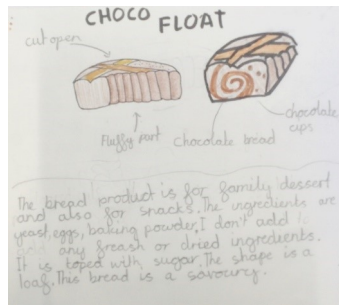 CHOCO FLOAT
cut open
Fluffy part
Chocolate bread
chocolate
cips
The bread product is for family dessert
and also for snacks. The ingredients are
yeast, eggs, baking powder, I don't add
any freash or dried ingredients.
It is toped with sugar. The shape is a
loaf. This bread is a savoury.